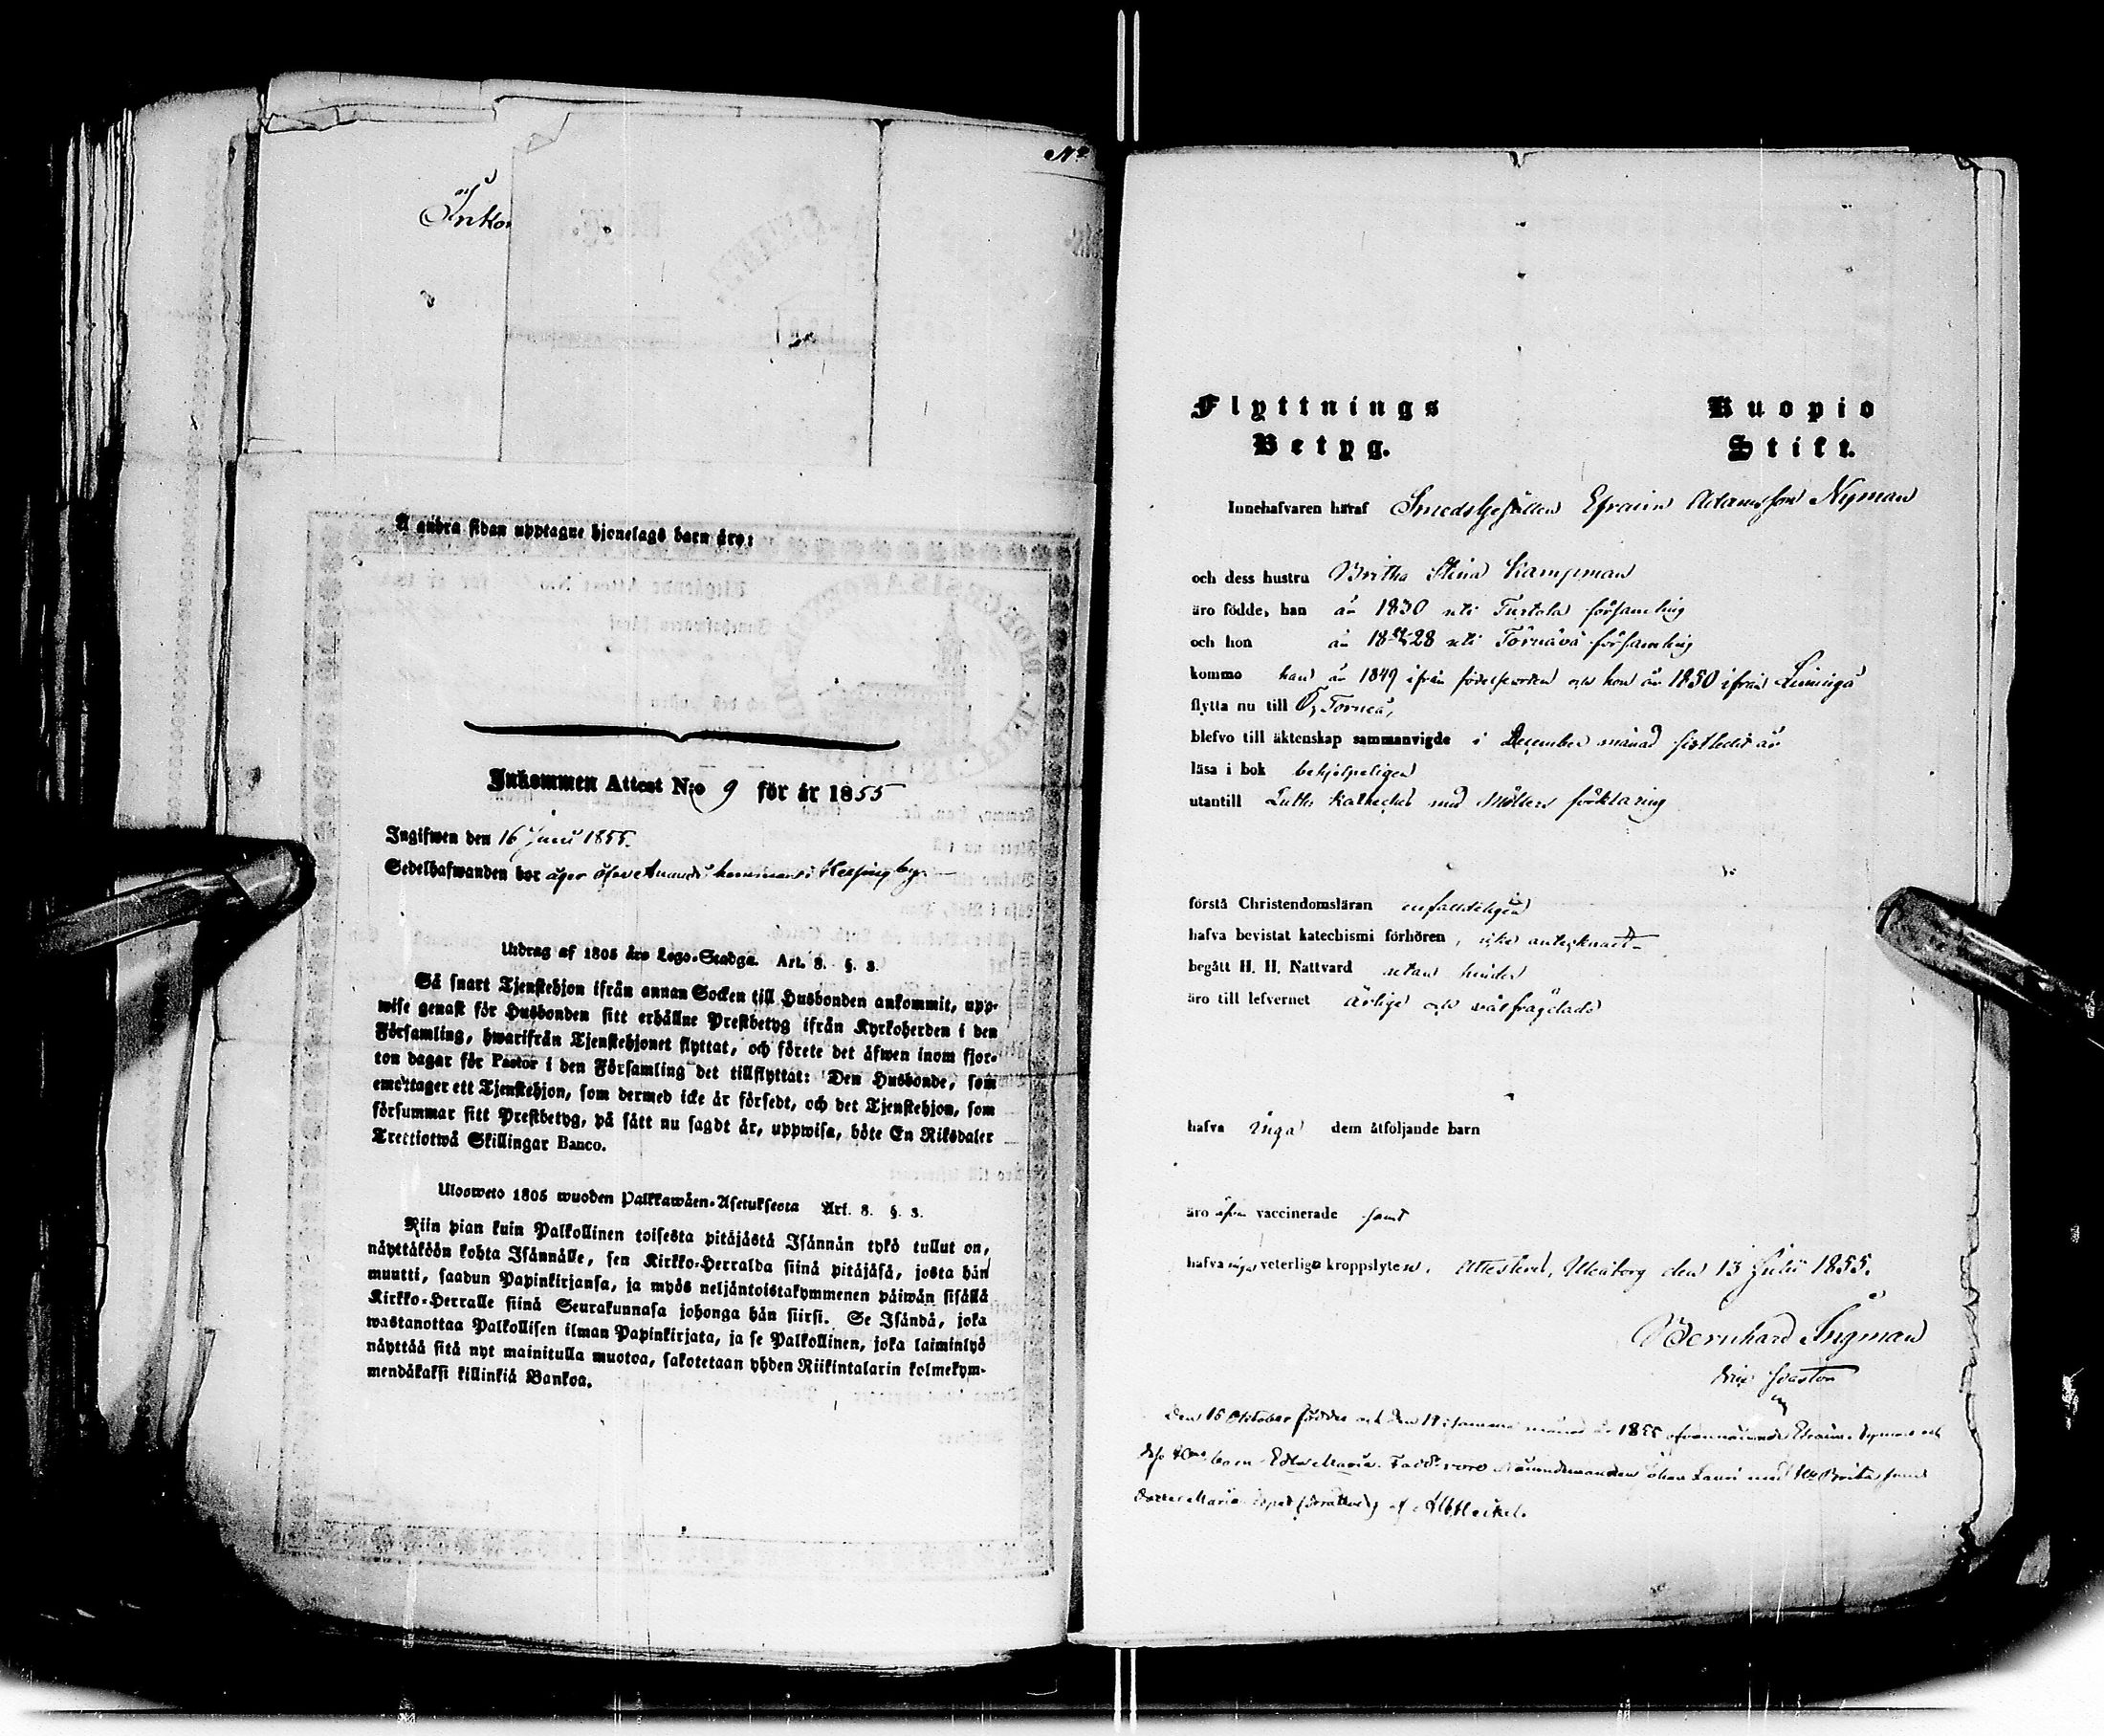 No
af
Inkom
Å andra sidan upptagne hjonelags barn äro:
Inkommen Attest N:o 9 för år 1855
Ingifwen den 16 Juni 1855.
Sedelhafwanden bor i Helsingby
Utdrag af 1805 års Lego-Stadga. Art. 8. §. 3.
Så snart Tjenstehjon ifrån annan Socken till Husbonden ankommit, upp-
wise genast för Husbonden sitt erhållne Prestbetyg ifrån Kyrkoherden i den
Församling, hwarifrån Tjenstehjonet flyttat, och förete det äfwen inom fjor-
ton dagar för Pastor i den Församling det tillflyttat: Den Husbonde, som
emottager ett Tjenstehjon, som dermed icke är försedt, och det Tjenstehjon, som
försummar sitt Prestbetyg, på sätt nu sagdt är, uppwisa, böte En Riksdaler
Trettiotwå Skillingar Banco.
Uloswеto 1805 wuoden Palkkawäen-Asetuksesta Art. 8. §. 3.
Niin pian kuin Palkollinen toisesta pitäjästä Isännän tykö tullut on,
näyttäköön kohta Isännälle, sen Kirkko-Herralda siinä pitäjäsä, josta hän
muutti, saadun Papinkirjansa, ja myös neljäntoistakymmenen päiwän sisällä
Kirkko-Herralle siinä Seurakunnasa johonga hän siirsi. Se Isändä, joka
wastanottaa Palkollisen ilman Papinkirjata, ja se Palkollinen, joka laiminlyö
näyttää sitä nyt mainitulla muotoa, sakotetaan yhden Riikintalarin kolmekym-
mendäkaksi killinkiä Bankoa.
Flyttnings Kuopio
Betyg. Stift.
Innehafvaren häraf Smedsgesällen Efraim Adamsson Nyman
och dess hustru Britha Stina Kampman
äro födde, han år 1830 uti Turtola församling
och hon år 1828 uti Törnävä församling
kommo han år 1849 ifrån födelseorten och hon år 1850 ifrån Limingo
flytta nu till Ö, Torneå,
blefvo till äktenskap sammanvigde i December månad sistledet år
läsa i bok behjelpeligen
utantill Luth. Kateches med Möllers förklaring
förstå Christendomsläran enfaldeligen
hafva bevistat katechismi förhören, icke antecknadt
begått H. H. Nattvard utan hinder
äro till lefvernet ärlige och välfrägdade
hafva inga dem åtföljande barn
äro äfven vaccinerade samt
hafva inga veterliga kroppslyten. Attesterad, Uleåborg den 13 Juli 1855.
Bernhard Ingman
Vice Pastor
Den 15 Oktober föddes och den 17 i samma månad år 1855 ofvannämnde Efraim Nyman och
dess barn Edla Maria. Nämndemannen Johan Lauri med
Maria af Alb. Heikel.